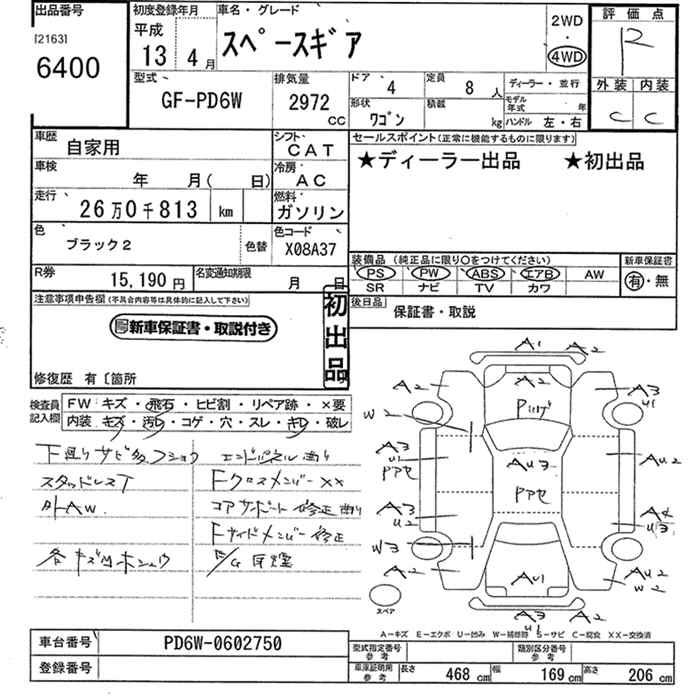 出品番号
[2163]
6400
初度登録年月
平成
13年 4月
車名・グレード
スペースギア
2WD
・
4WD
評価点
R
外装 内装
C C
型式
GF-PD6W
排気量
2972
CC
ドア 4
定員 8人
ディーラー・並行
形状 ワゴン
積載 kg
モデル年式 年
ハンドル 左・右
車歴 自家用
シフト CAT
セールスポイント(正常に機能するものに限ります)
★ディーラー出品 ★初出品
車検 年 月( 日)
冷房 AC
走行 26万0千813 km
燃料 ガソリン
色 ブラック2
色替
色コード X08A37
装備品 (純正品に限り○をつけてください)
新車保証書
PS PW ABS エアB AW
SR ナビ TV カワ
有・無
R券 15,190円
名変通知期限 月 日
後日品 保証書・取説
注意事項申告欄(不具合内容等は具体的に記入して下さい)
新車保証書・取説付き
初出品
修復歴 有〔箇所
検査員記入欄
FW キズ・飛石・ヒビ割・リペア跡・×要
内装 キズ・汚れ・コゲ・穴・スレ・キレ・破レ
下廻りサビ多フショク エンドパネル曲り
スタッドレスT Fクロスメンバー××
外AW コアサポート修正曲り
Fサイドメンバー修正
各キズ凹ホシュウ E/G白煙
A1 A2
A2 A2 A3
U1
W2
A3 U1 AU3 AU2
ppアセ ppアセ
A3 U2
W3
A2 AU1 AU2
W2
A3 U1 A2
スペア
A-キズ E-エクボ U-凹み W-補修跡 S-サビ C-腐食 XX-交換済
車台番号 PD6W-0602750
登録番号
型式指定番号 参考
類別区分番号 参考
車庫証明用 参考 長さ 468 cm 幅 169 cm 高さ 206 cm